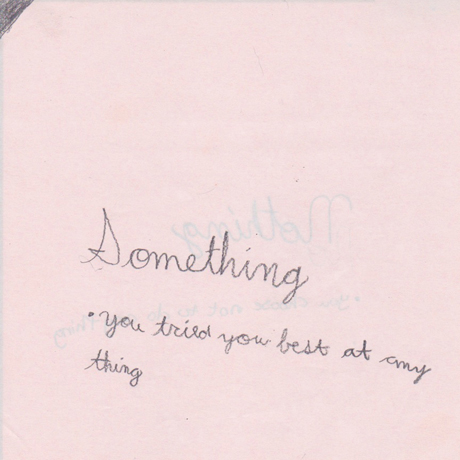 Something
• you tried you best at any
thing